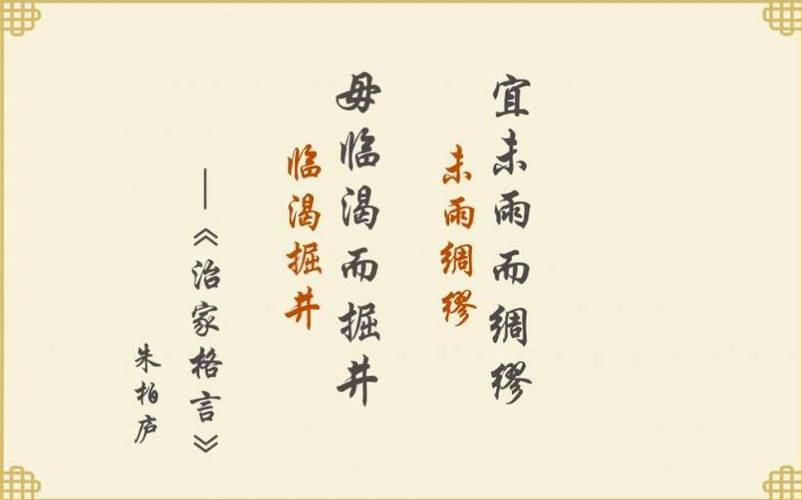 宜未雨而绸缪
未雨绸缪
毋临渴而掘井
临渴掘井
—《治家格言》
朱柏庐